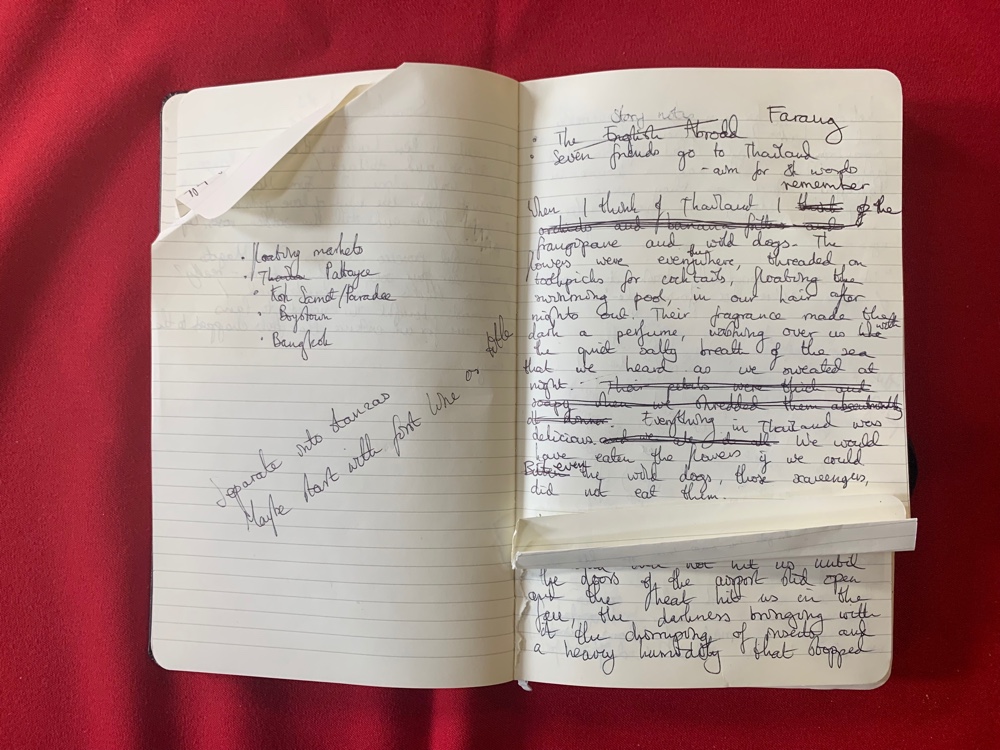 • floating markets
• Thaila Pattayee
• Koh Samet/Paradee
• Boystown
• Bangkok
Separate into stanzas
Maybe start with first line as title
Story notes
• The English Abroad Faraug
• Seven friends go to Thailand
- aim for 8k words
remember
When I think of Thailand I of the
orchids and banana fritters and
frangipane and wild dogs. The
flowers were everywhere, threaded on
toothpicks for cocktails, floating the
swimming pool, in our hair after
nights out. Their fragrance made the
dark a perfume, washing over us like with
the quiet salty breath of the sea
that we heard as we sweated at
night. Their petals were thick and
soapy when we shredded them absentmindedly
at dinner. Everything in Thailand was
delicious and we ate it all. We would
have eaten the flowers if we could
But even the wild dogs, those scavengers,
did not eat them.
not hit us until
the doors of the airport slid open
and the heat hit us in the
face, the darkness bringing with
it the chirruping of insects and
a heavy humidity that stopped